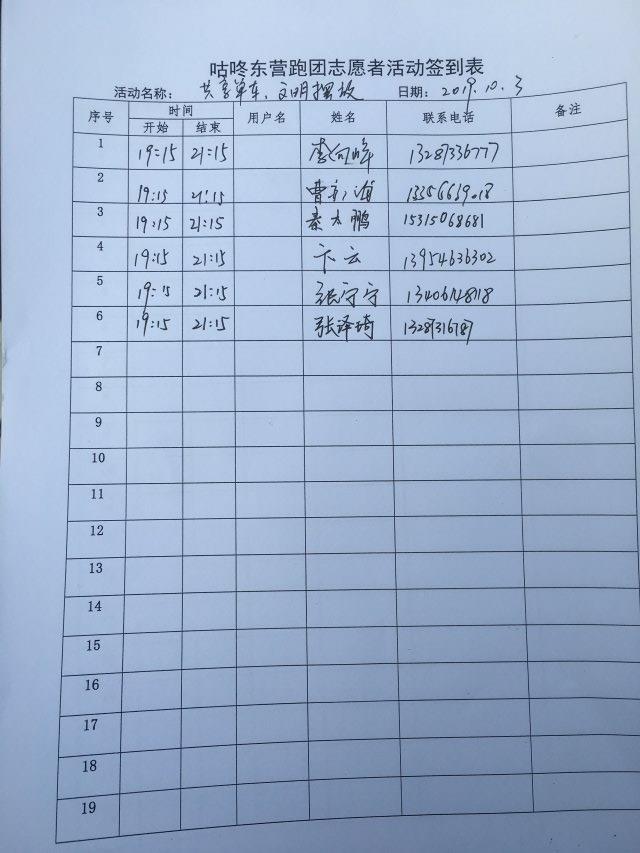 咕咚东营跑团志愿者活动签到表
活动名称: 共享单车、文明摆放 日期: 2019.10.3
序号 时间 用户名 姓名 联系电话 备注
开始 结束
1 19:15 21:15 李向峰 13287336777
2 19:15 21:15 曹 13356639018
3 19:15 21:15 秦大鹏 15315068681
4 19:15 21:15 卞云 13954636302
5 19:15 21:15 张宁宁
6 19:15 21:15 张泽琦
7
8
9
10
11
12
13
14
15
16
17
18
19